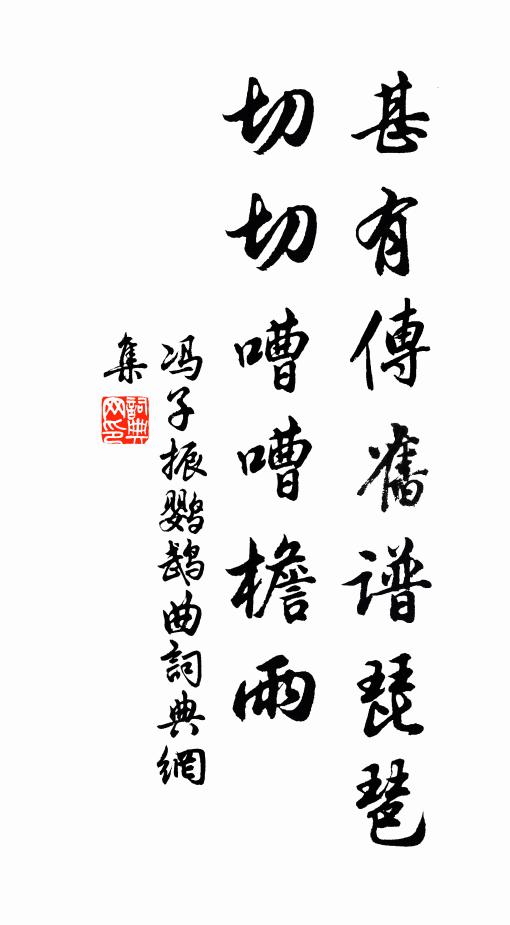 甚有傳舊谱琵琶
切切嘈嘈檐雨
冯子振鹦鹉曲詞典網
集
詞典
网印